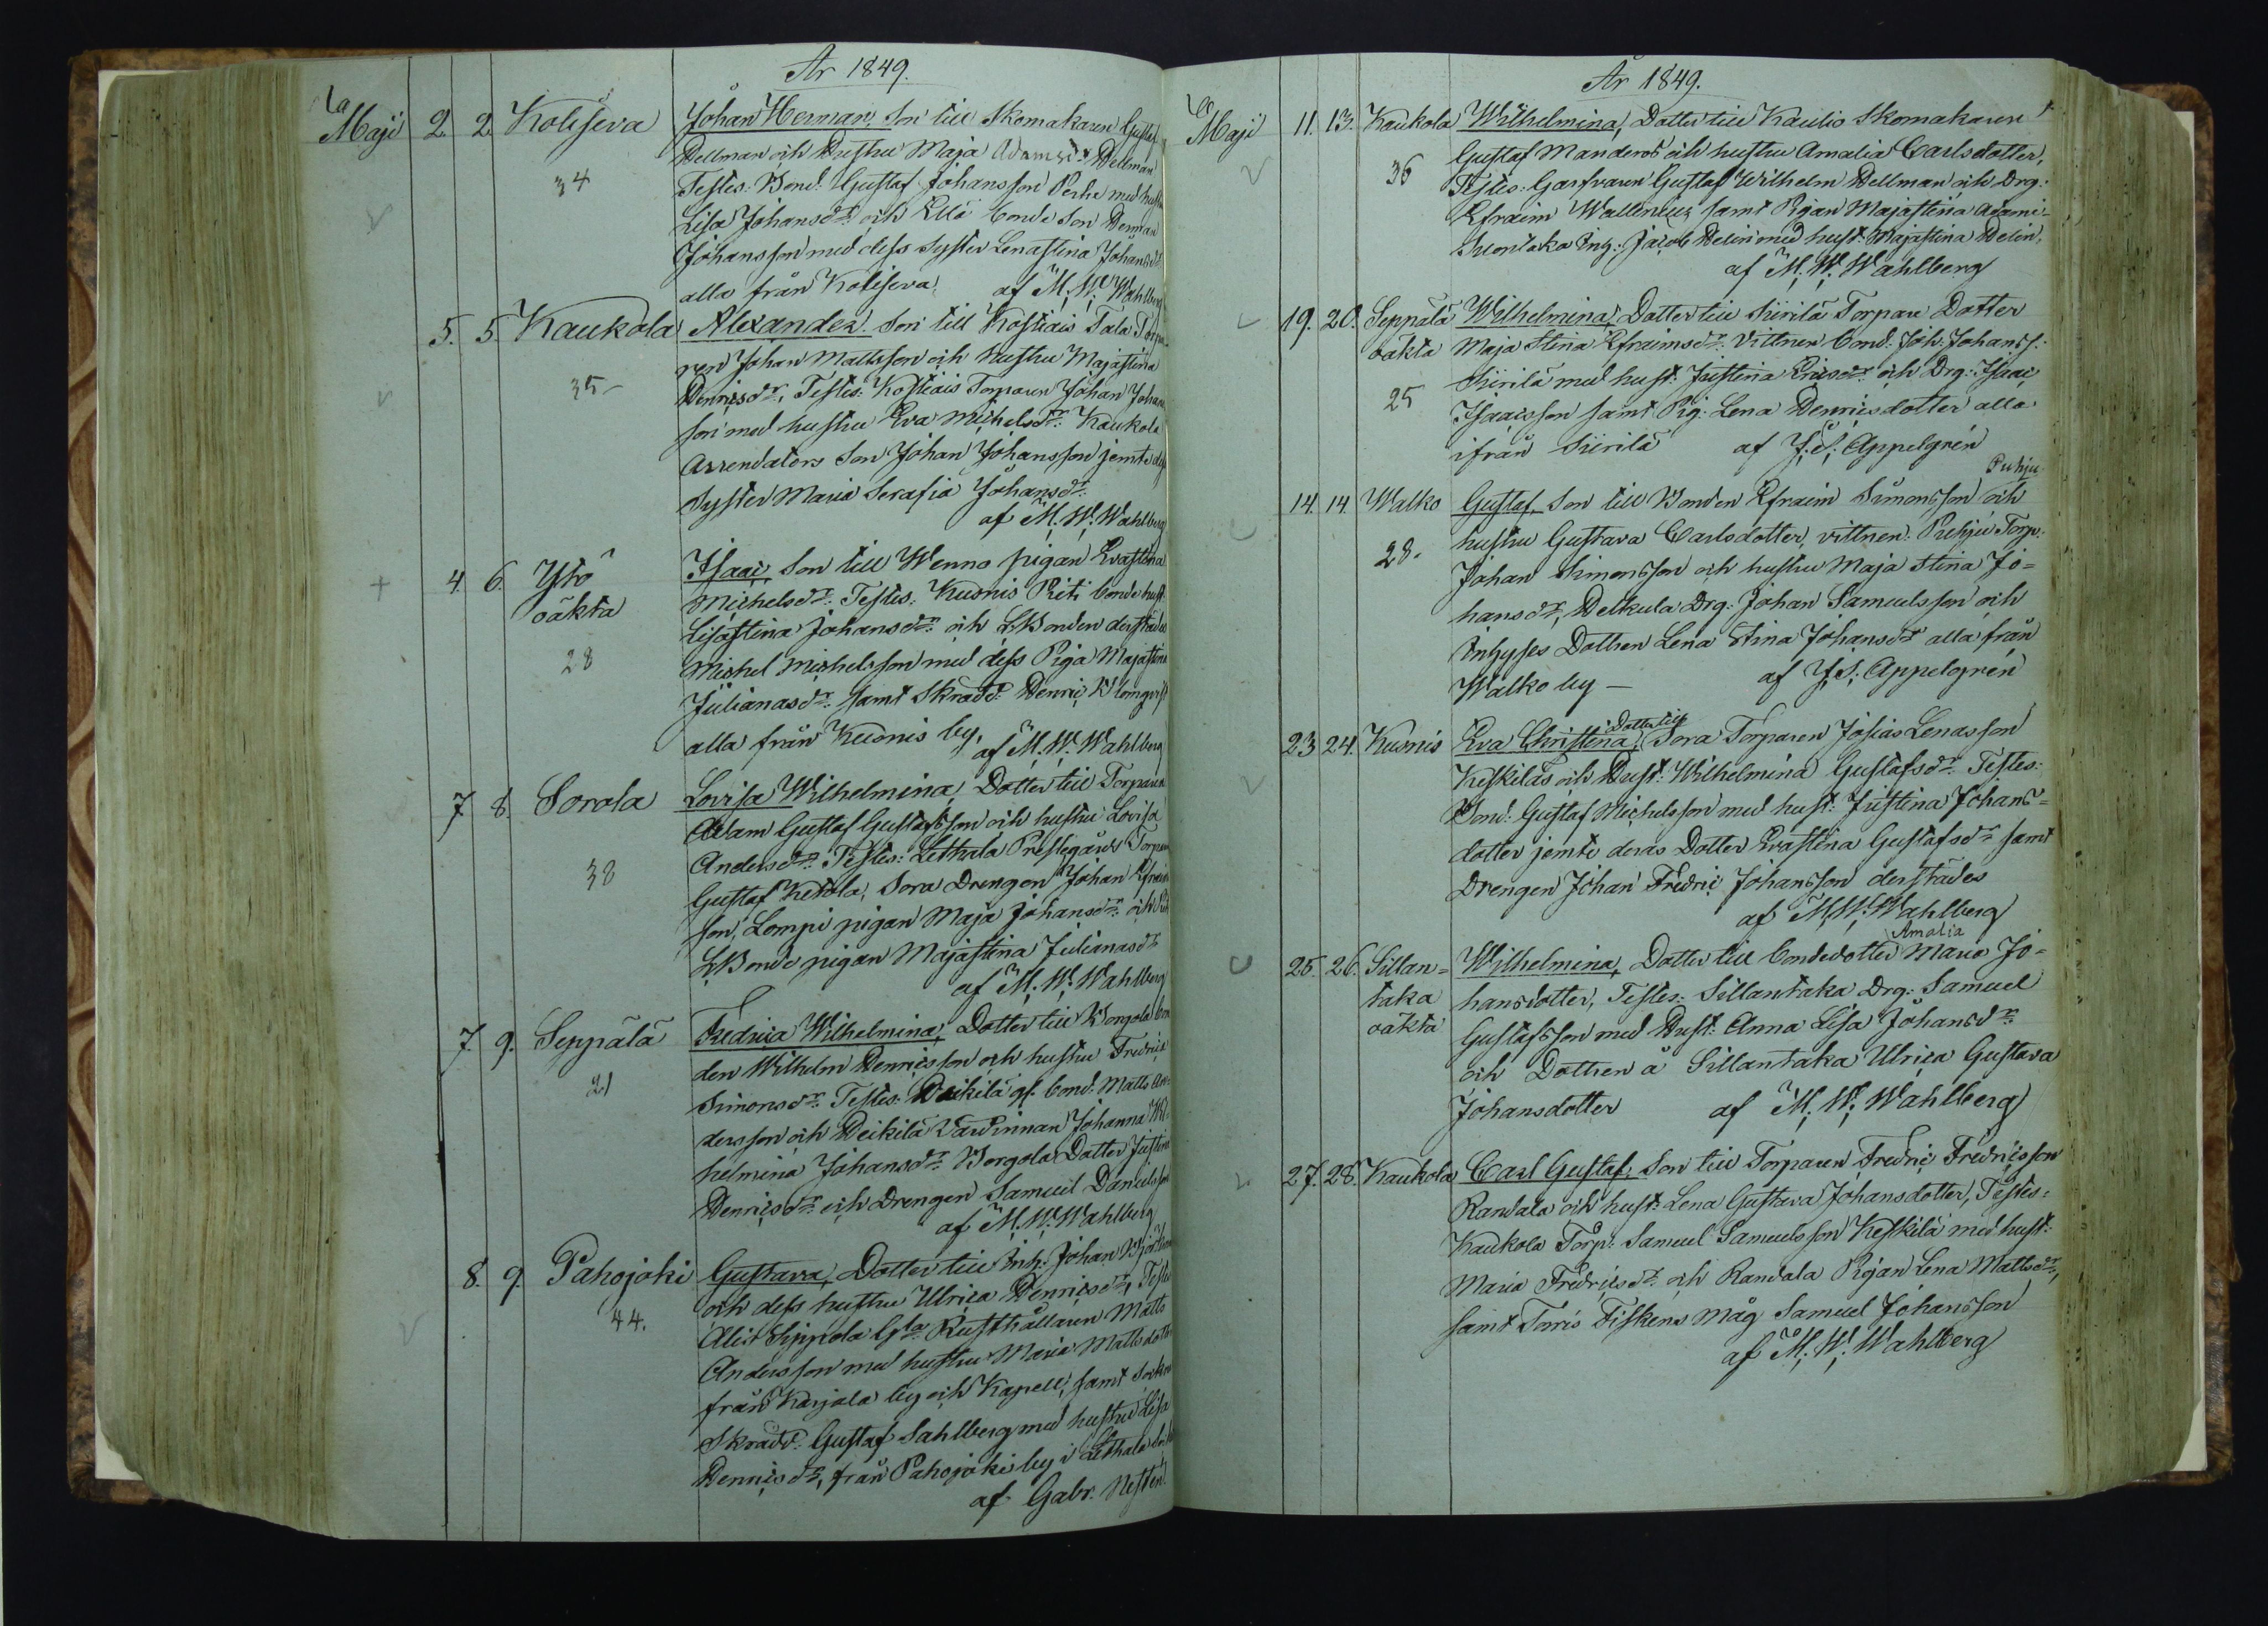 År 1849.
Maji 2. 2. Koliseva Johan Herman, Son till Skomakaren Gustaf
Dellman och Hustru Maja Adamsdr Dellman
34 Testes: Bond: Gustaf Johansson Perhe med hustru
Lisa Johansdr och Ellä bonde Son Herman
Johansson med dess Syster Lenastina Johansdr
alla från Koliseva, af M. W. Wahlberg
5. 5 Kaukola Alexander Son till Kostiais Tala Torpa-
ren Johan Mattsson och hustru Majastina
35 Henricsdr, Testes: Kostiais Torparen Johan Johans
son med hustru Eva Michelsdr. Kaukola
Arrendators Son Johan Johansson jemte dess
Syster Maria Serafia Johansdr.
af M. W. Wahlberg
4. 6. Ylö Isaac, Son till Wenno pigan Evastina
oäkta Michelsdr: Testes: Kuonis Piti bonde hust.
Lisastina Johansdr: och LBonden derstädes
28 Michel Michelsson med dess Piga Majastina
Julianasdr: samt Skrädd: Henric Blomqvist
alla från Kuonis by, af M. W. Wahlberg
7 8. Sorola Lovisa Wilhelmina, Dotter till Torparen
Adam Gustaf Gustafsson och hustru Lovisa
38 Andersdr: Testes: Lethala Prestegårds Torparen
Gustaf Ketola, Sora Drengen Johan Efraims
son, Lompi pigan Maja Johansdr: och
LBonde pigan Majastina Julianasdr
af M. W. Wahlberg
7. 9. Seppälä Fredrica Wilhelmina, Dotter till Borgola bon
den Wilhelm Henricsson och hustru Fredrica
21 Simonsdr: Testes: Heikilä gl. bond: Matts An-
dersson och Heikilä Värdinnan Johanna Wil-
helmina Johansdr: Borgola Dotter Justina
Henricsdr och Drengen Samuel Danielsson
af M. W. Wahlberg
8. 9. Pahojoki Gustava, Dotter till Inh: Johan
44. och dess hustru Ulrica Henricsdr, Testes
Alid Seppola Rusthållaren Matts
Andersson med hustru Maria Mattsdotter
från Karjala by och Kapell, samt Sockne
Skrädd: Gustaf Sahlberg med hustru Lisa
Henricsdr, från Pahojoki by i Lethala
af Gabr. Nestén.
År 1849.
Maji 11. 13. Kaukola Wilhelmina, Dotter till Kaulio Skomakaren
Gustaf Manderos och hustru Amalia Carlsdotter,
36 Testes: Garfvaren Gustaf Wilhelm Dellman och Drg:
Efraim Wallenius samt Pigan Majastina Adami-
Suontaka Inh: Jacob Helin med hust: Majastina Helin,
af M. W. Wahlberg
19. 20. Seppälä Wilhelmina, Dotter till Siirilä Torpare Dotter
oäkta Maja Stina Efraimsdr: Vittnen bond: Joh: Johanss:
Siirilä med hust: Justina Ericsdr och Drg: Isaac
25 Isaacsson samt Pig: Lena Henricsdotter alla
ifrån Siirilä af J. S. Appelgrén
Puhju
14. 14. Walko Gustaf, Son till Bonden Efraim Simonsson och
hustru Gustava Carlsdotter, vittnen: Puhju Torp:
28. Johan Simonsson och hustru Maja Stina Jo=
hansdr, Heikula Drg: Johan Samuelsson och
Inhyses Dottren Lena Stina Johansdr alla från
Walko by — af J. S. Appelgrén
Dotter till
23 24. Kuonis Eva Christina, Sora Torparen Josias Lenasson
Keskiläs och Hust: Wilhelmina Gustafsdr Testes:
Bond: Gustaf Michelsson med hust: Justina Johans=
dotter jemte deras Dotter Evastina Gustafsdr samt
Drengen Johan Fredric Johansson derstädes
af M. W. Wahlberg
Amalia
25. 26. Sillan= Wilhelmina, Dotter till bondedotter Maria Jo=
taka hansdotter, Testes: Sillantaka Drg: Samuel
oäkta Gustafsson med Hust: Anna Lisa Johansdr:
och Dottren å Sillantaka Ulrica Gustava
Johansdotter af M. W. Wahlberg
27. 28. Kaukola Carl Gustaf, Son till Torparen Fredric Fredricsson
Randala och hust: Lena Gustava Johansdotter, Testes:
Kaukola Torp: Samuel Samuelsson Keskilä med hust:
Maria Fredricsdr och Randala Pigan Lena Mattsdr,
samt Torris Fiskens Måg Samuel Johansson
af M. W. Wahlberg